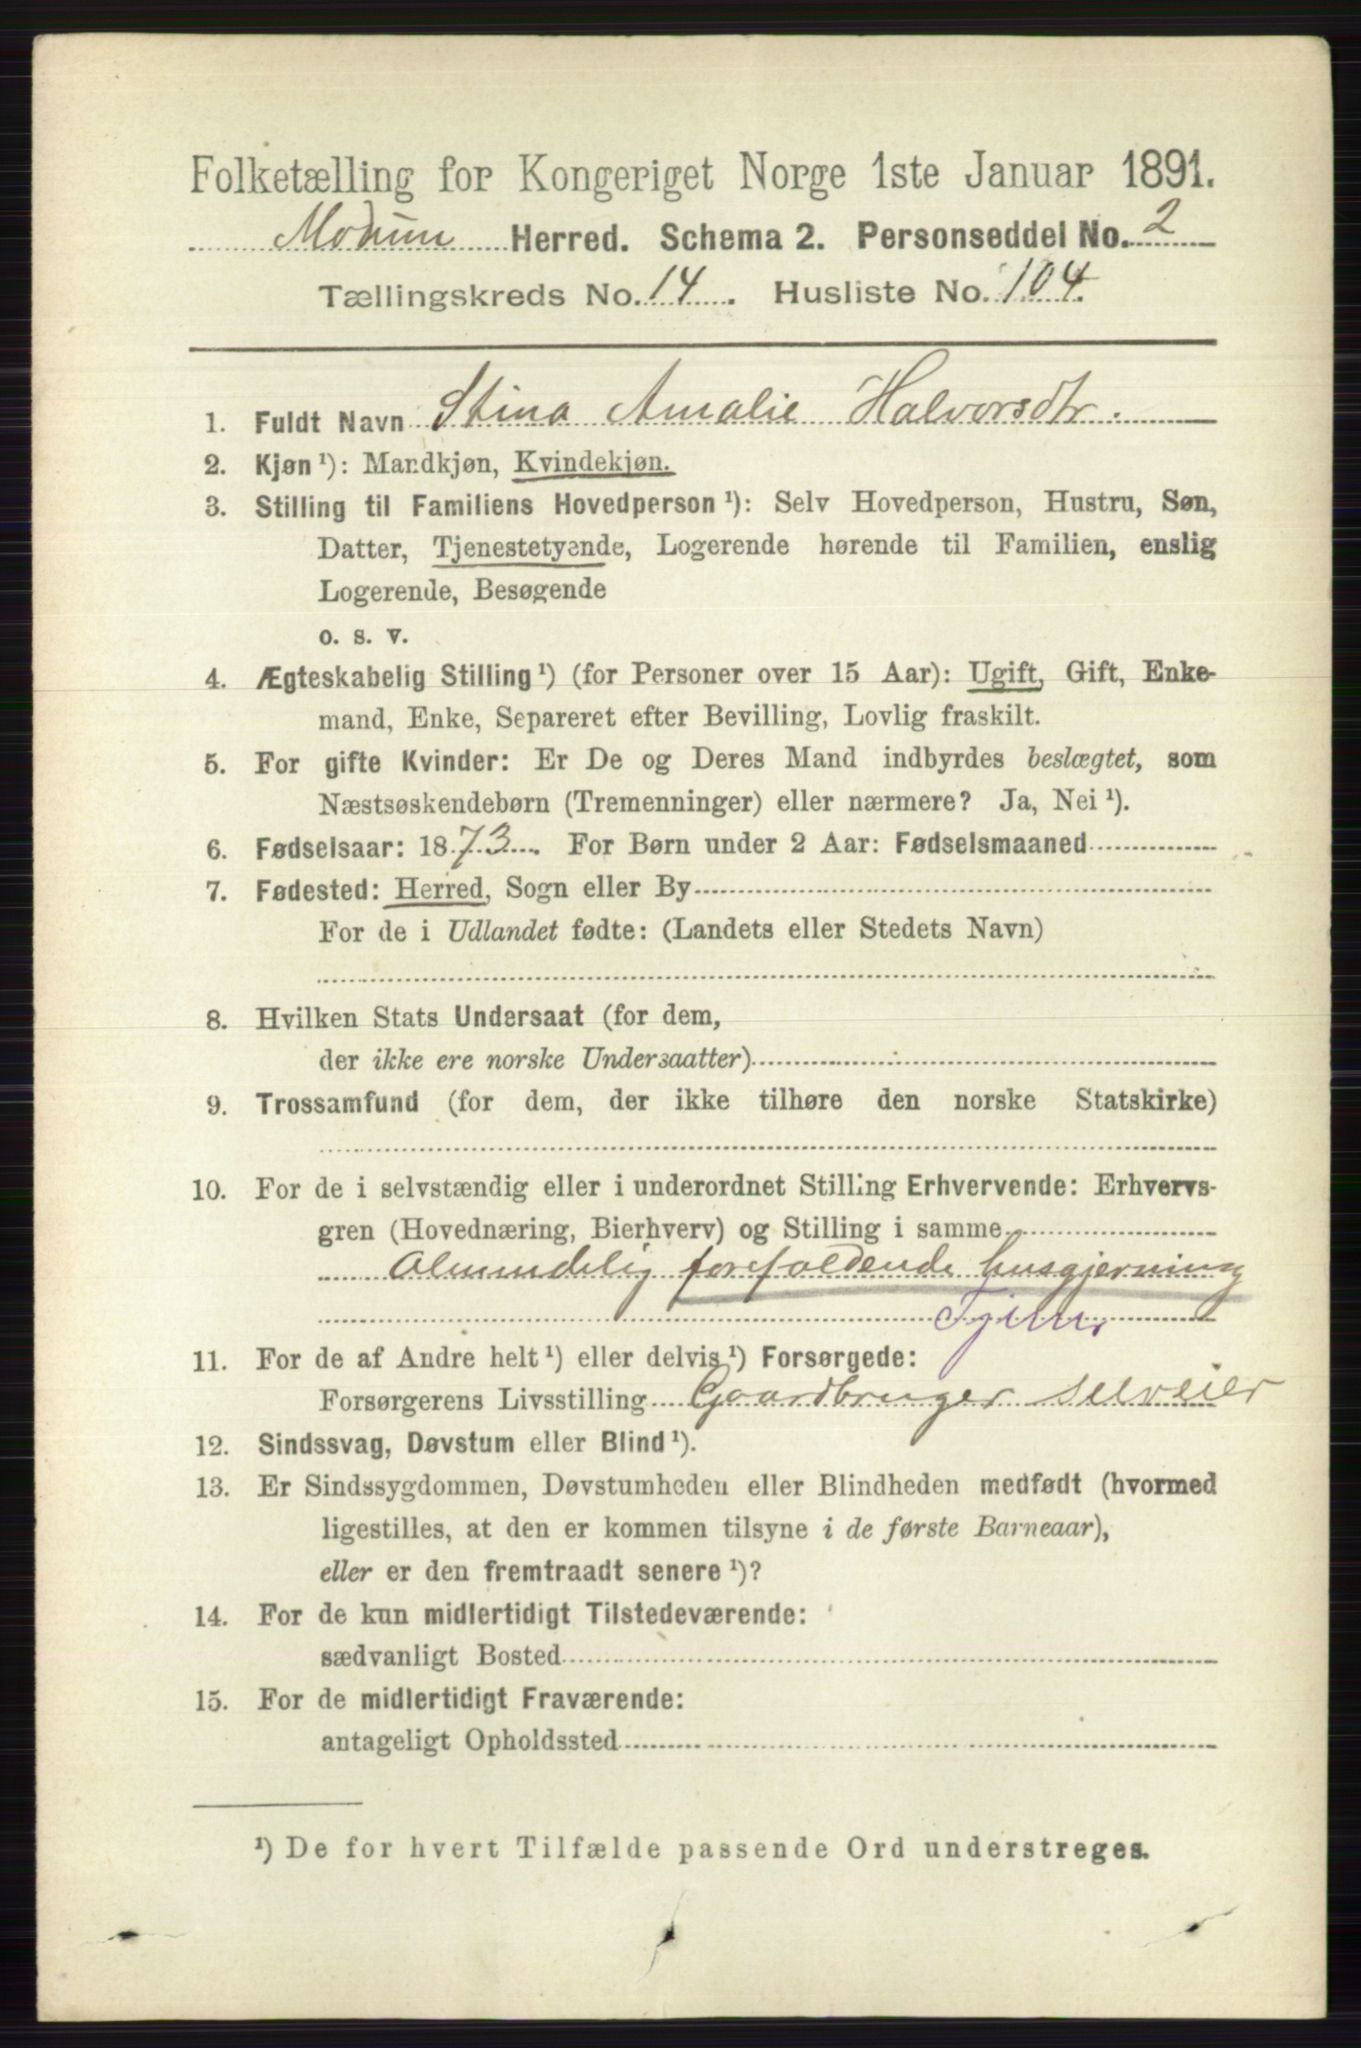 Folketælling for Kongeriget Norge 1ste Januar 1891.
Modum Herred. Schema 2. Personseddel No. 2
Tællingskreds No. 14. Husliste No. 104.
1. Fuldt Navn Stina Amalie Halvorsdtr.
2. Kjøn ¹): Mandkjøn, Kvindekjøn.
3. Stilling til Familiens Hovedperson ¹): Selv Hovedperson, Hustru, Søn,
Datter, Tjenestetyende, Logerende hørende til Familien, enslig
Logerende, Besøgende
o. s. v.
4. Ægteskabelig Stilling ¹) (for Personer over 15 Aar): Ugift, Gift, Enke-
mand, Enke, Separeret efter Bevilling, Lovlig fraskilt.
5. For gifte Kvinder: Er De og Deres Mand indbyrdes beslægtet, som
Næstsøskendebørn (Tremenninger) eller nærmere? Ja, Nei ¹).
6. Fødselsaar: 1873. For Børn under 2 Aar: Fødselsmaaned
7. Fødested: Herred, Sogn eller By
For de i Udlandet fødte: (Landets eller Stedets Navn)
8. Hvilken Stats Undersaat (for dem,
der ikke ere norske Undersaatter)
9. Trossamfund (for dem, der ikke tilhøre den norske Statskirke)
10. For de i selvstændig eller i underordnet Stilling Erhvervende: Erhvervs-
gren (Hovednæring, Bierhverv) og Stilling i samme
Almindelig forefaldende husgjerning
11. For de af Andre helt ¹) eller delvis ¹) Forsørgede:
Forsørgerens Livsstilling Gaardbruger selveier
12. Sindssvag, Døvstum eller Blind ¹).
13. Er Sindssygdommen, Døvstumheden eller Blindheden medfødt (hvormed
ligestilles, at den er kommen tilsyne i de første Barneaar),
eller er den fremtraadt senere ¹)?
14. For de kun midlertidigt Tilstedeværende:
sædvanligt Bosted
15. For de midlertidigt Fraværende:
antageligt Opholdssted
¹) De for hvert Tilfælde passende Ord understreges.